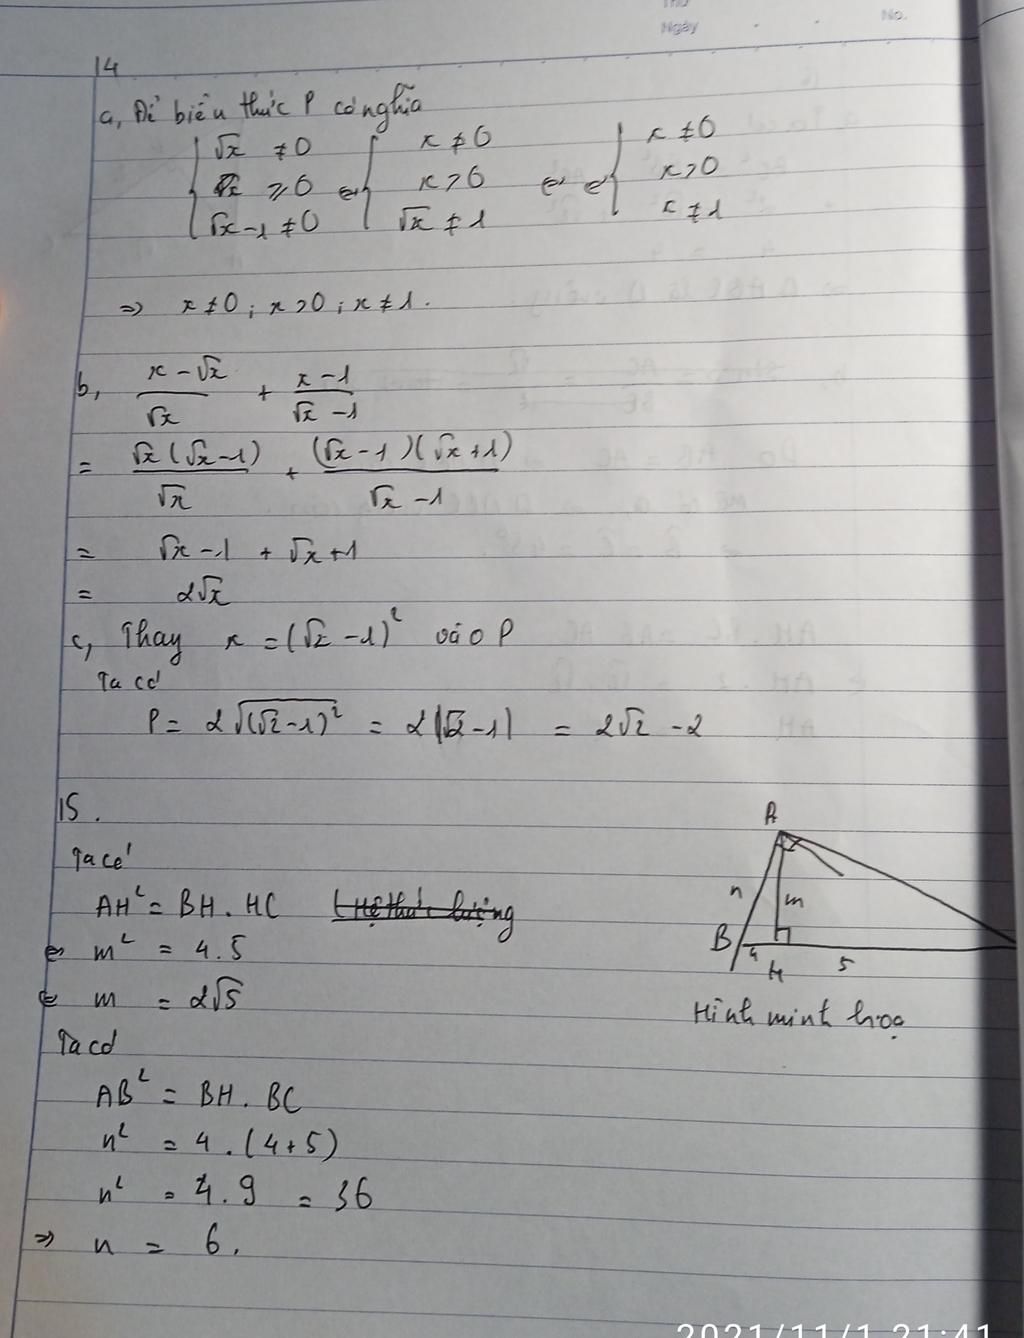 Thứ
Ngày No.
14
a, Để biểu thức P có nghĩa
{ √x ≠ 0 { x ≠ 0 { x ≠ 0
√x ≥ 0 <=> x > 0 <=> <=> x > 0
√x - 1 ≠ 0 √x ≠ 1 x ≠ 1
=> x ≠ 0 ; x > 0 ; x ≠ 1.
b, (x - √x)/√x + (x - 1)/(√x - 1)
= √x(√x - 1)/√x + (√x - 1)(√x + 1)/(√x - 1)
= √x - 1 + √x + 1
= 2√x
c, Thay x = (√2 - 1)² vào P
Ta có
P = 2√((√2 - 1)²) = 2|√2 - 1| = 2√2 - 2
15.
Ta có
AH² = BH . HC (Hệ thức lượng
<=> m² = 4.5
<=> m = 2√5
Ta có
AB² = BH . BC
n² = 4 . (4+5)
n² = 4 . 9 = 36
=> n = 6.
A
n m
B 4 H 5
Hình minh hoạ
2021/11/1 21:41